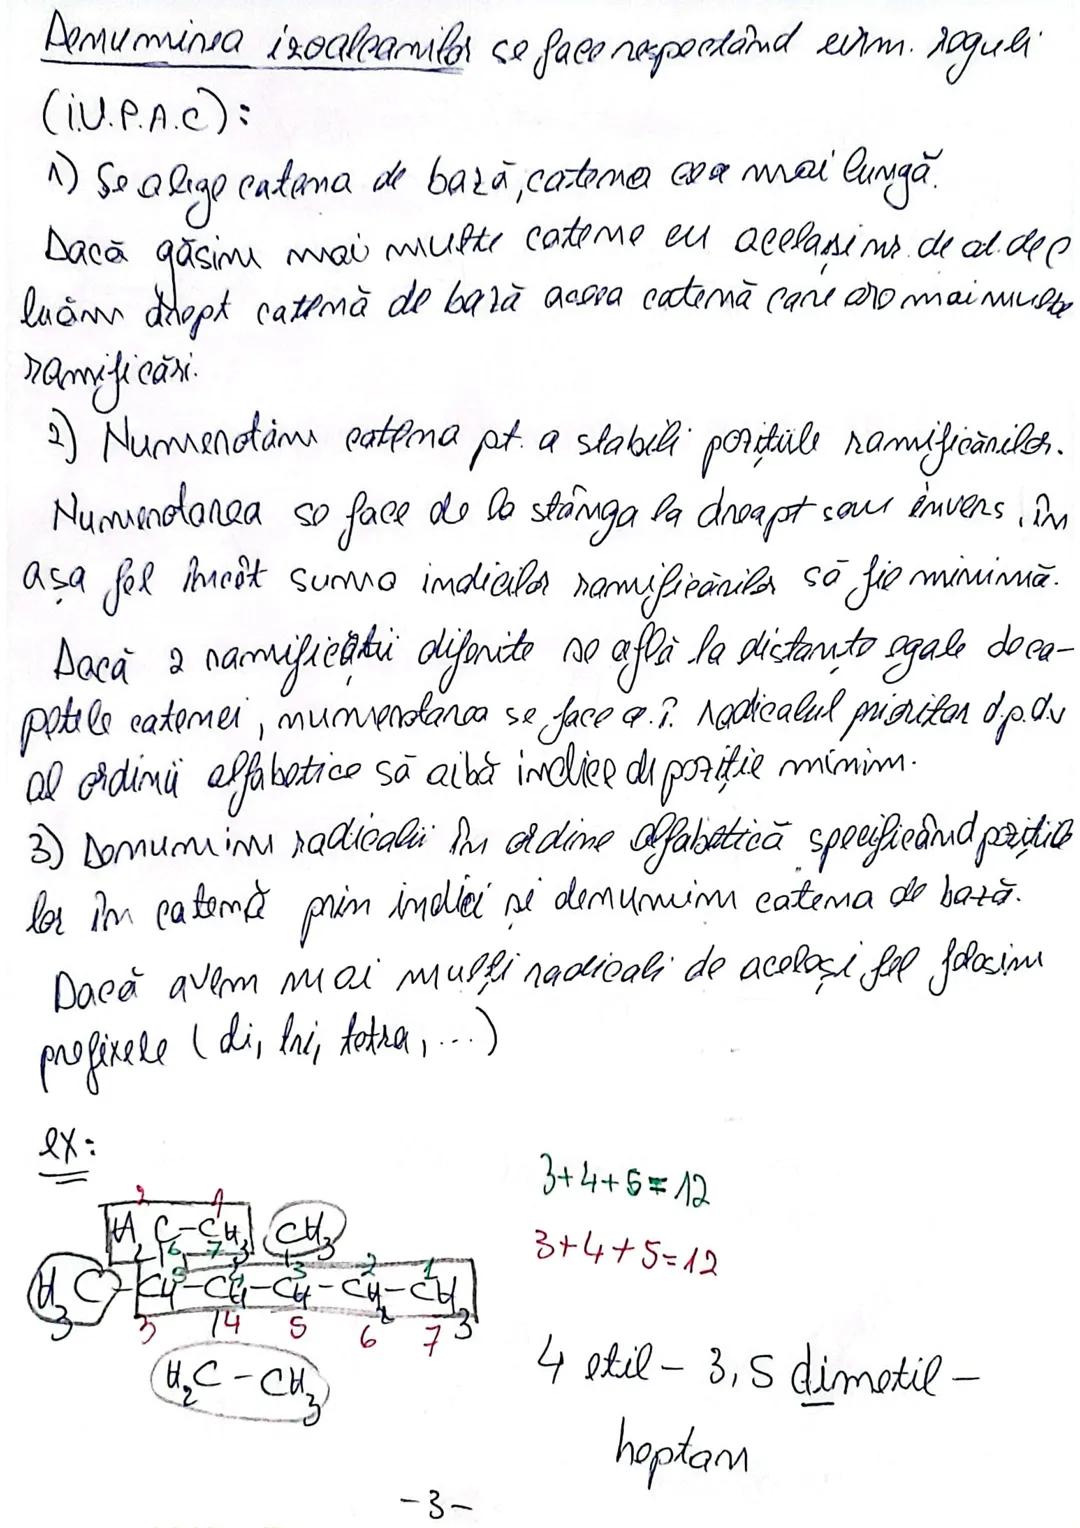 Denumirea izoalcanilor se face respectând urm. reguli
(i.U.P.A.C):
1) Se alege catena de bază, catena cea mai lungă.
Dacă găsim mai multe catene cu același nr. de at. de C
luăm drept catenă de bază aceea catenă care are mai multe
ramificări.
2) Numerotăm catena pt. a stabili pozițiile ramificărilor.
Numerotarea se face de la stânga la dreapt sau invers, în
așa fel încât suma indicilor ramificărilor să fie minimă.
Dacă 2 ramificații diferite se află la distanțe egale de ca-
petele catenei, numerotarea se face a.î. radicalul prioritar d.p.d.v
al ordinii alfabetice să aibă indice de poziție minim.
3) Denumim radicalii în ordine alfabetică specificând pozițiile
lor în catenă prin indici și denumim catena de bază.
Dacă avem mai mulți radicali de același fel folosim
prefixele (di, tri, tetra, ...)
ex:
3+4+5=12
2 1
H2C-CH3 CH3
6 7
3+4+5=12
5 4 3 2 1
H3C-CH-CH-CH-CH2-CH3
3 4 5 6 7
H2C-CH3
4 etil - 3,5 dimetil -
heptan
-3-